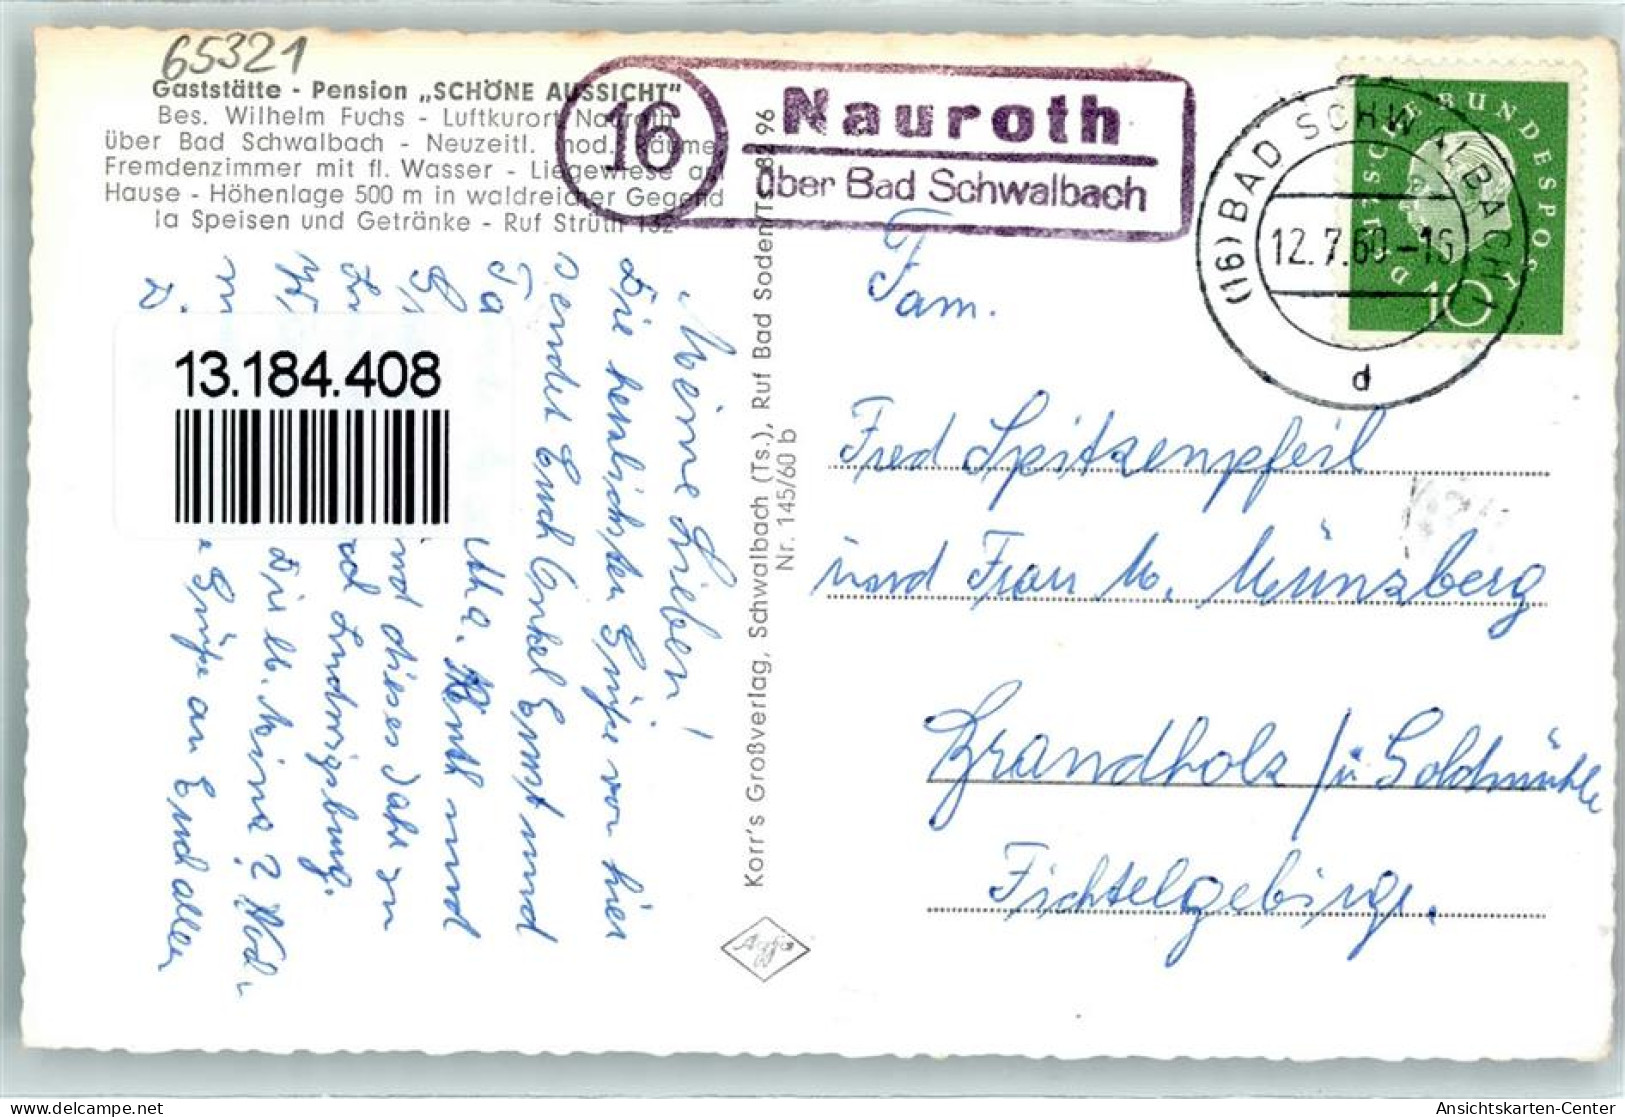 65321
Gaststätte - Pension „SCHÖNE AUSSICHT"
Bes. Wilhelm Fuchs - Luftkurort Nauroth
über Bad Schwalbach - Neuzeitl. mod. Räume
Fremdenzimmer mit fl. Wasser - Liegewiese am
Hause - Höhenlage 500 m in waldreicher Gegend
Ia Speisen und Getränke - Ruf Strüth 132
16
Nauroth
über Bad Schwalbach
DEUTSCHE BUNDESPOST
10
(16) BAD SCHWALBACH
12.7.60-16
d
13.184.408
Meine Lieben!
Die herzlichsten Grüße von hier
sendet Euch Onkel Ernst und
Ta
und dieses Jahr in
Ludwigsburg.
Grüße an Euch alle
Korr's Großverlag, Schwalbach (Ts.), Ruf Bad Soden/Ts. 8296
Nr. 145/60 b
Agfa
Fam.
Fred Spitzenpfeil
und Frau M. Münzberg
Brandholz / ü Goldmühle
Fichtelgebirge.
Ansichtskarten-Center